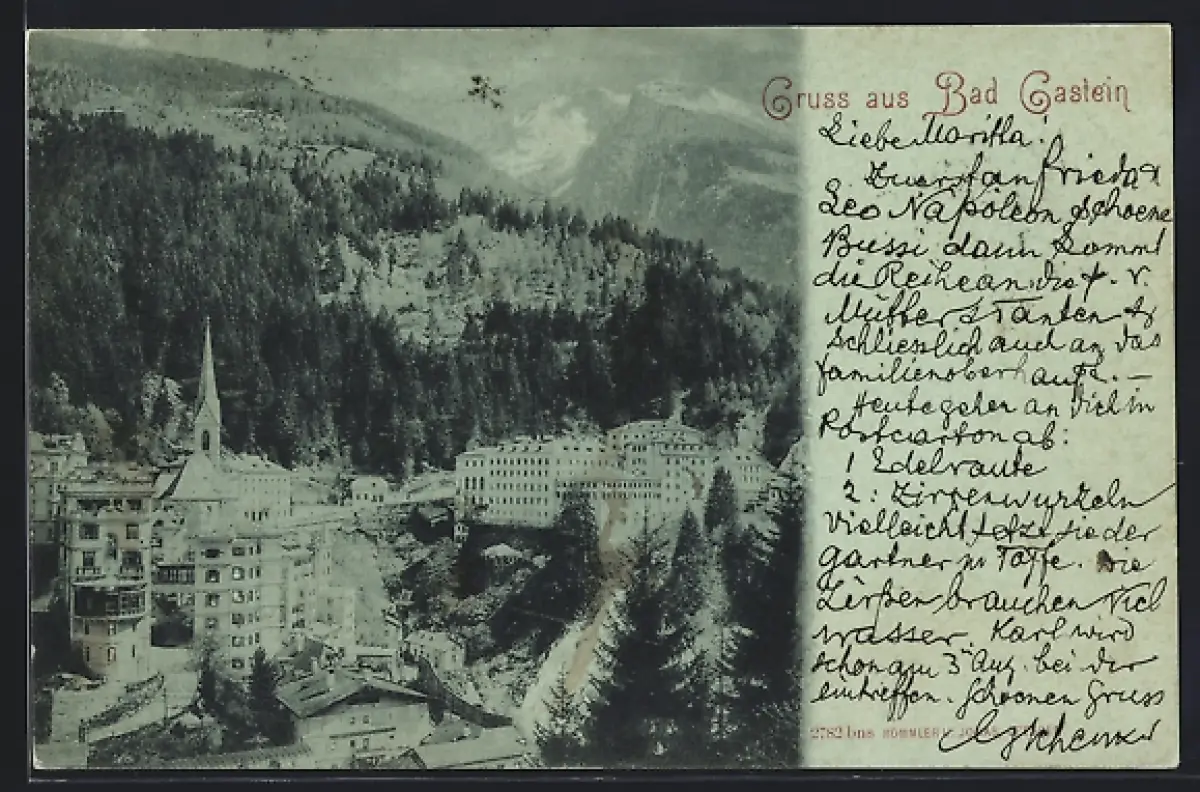 Gruss aus Bad Gastein
Liebe Maritka!
Zuerst an Frieda &
Leo Napoleon schoene
Bussi dann kommt
die Reihe an die
Mütter Tanten &
schliesslich auch an das
Familienoberhaupt. —
Heute gehen an dich in
Postcarton ab:
1 Edelraute
2: Zirbenwurzeln
Vielleicht setzt sie der
Gärtner in Töpfe. Die
Zirben brauchen viel
wasser. Karl wird
schon am 3 Aug. bei dir
eintreffen. Schoenen Gruss
2782 bns RÖMMLER & JONAS